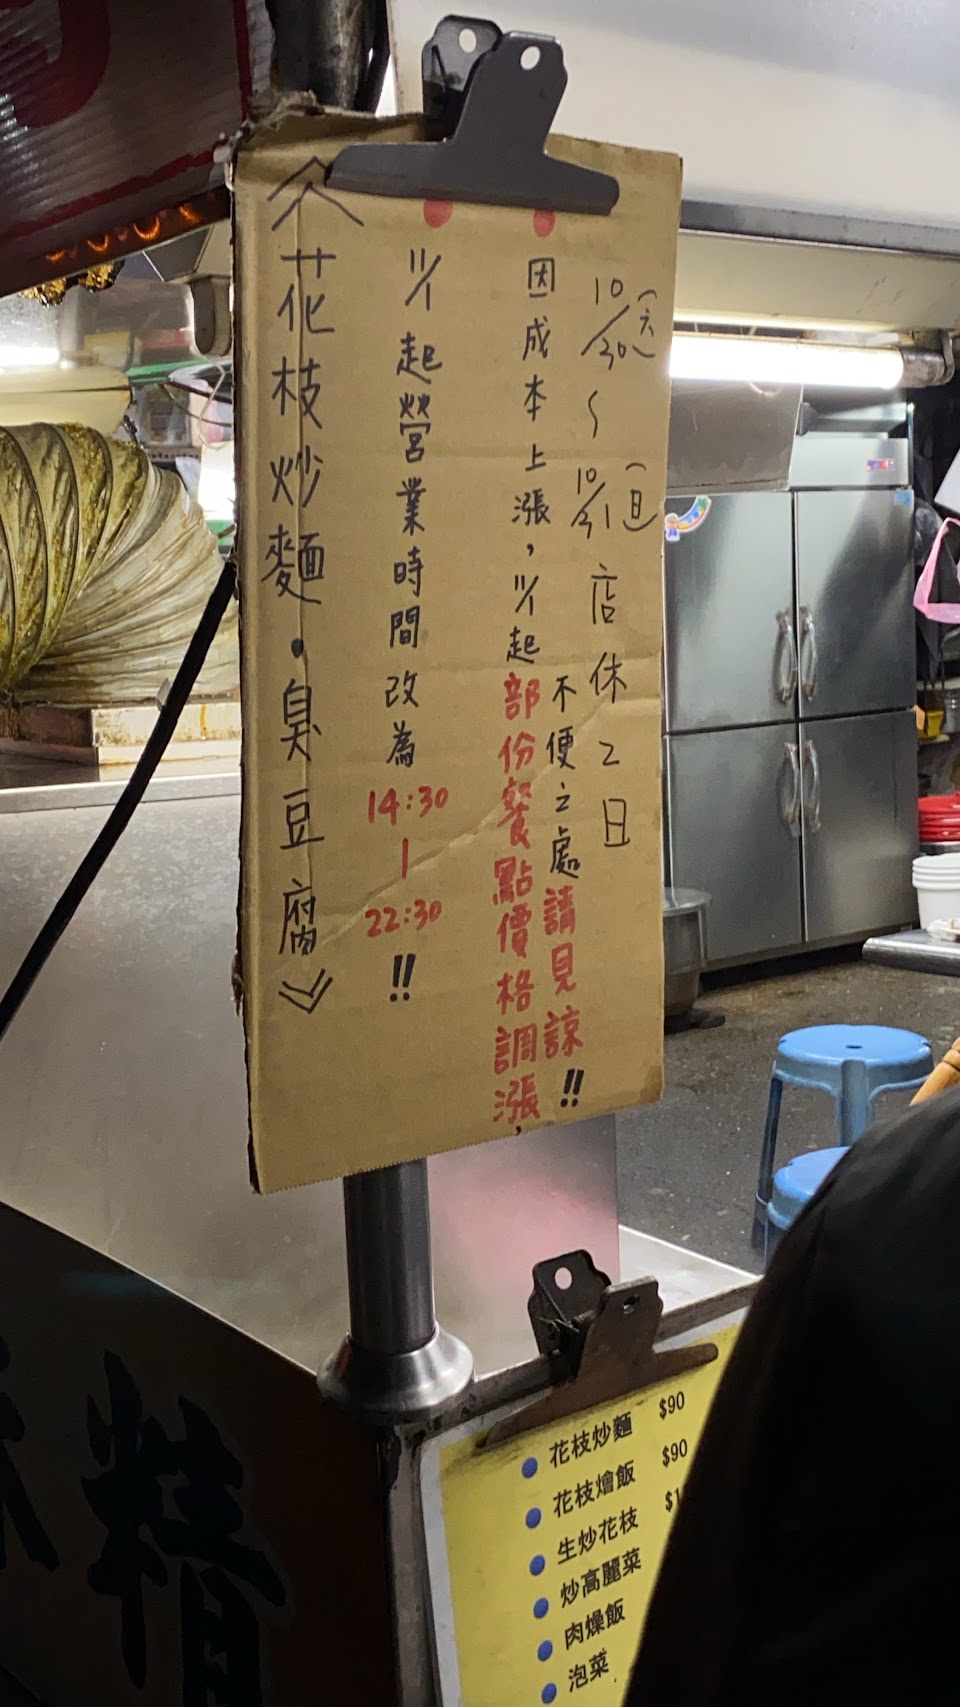 10/30(六)~10/31(日)店休2日
因成本上漲,11/1起部份餐點價格調漲,
不便之處請見諒!!
11/1起營業時間改為14:30|22:30!!
《花枝炒麵·臭豆腐》
花枝炒麵 $90
花枝燴飯 $90
生炒花枝
炒高麗菜
肉燥飯
泡菜
精